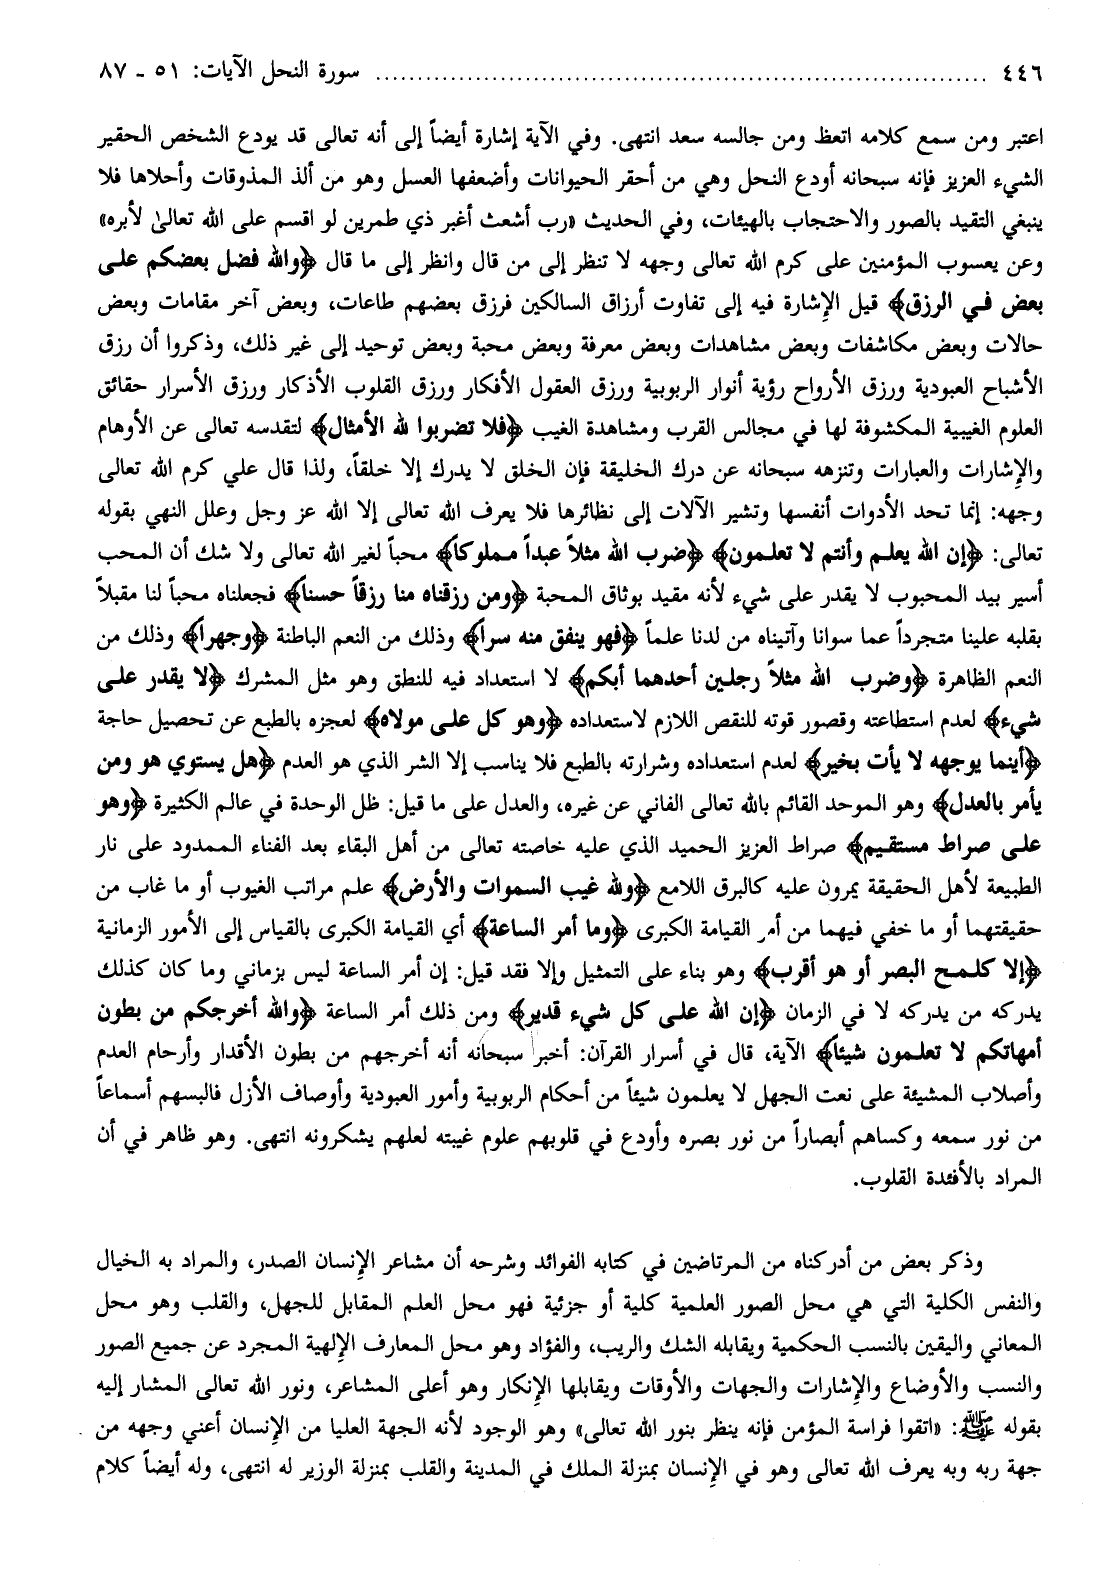 ٤٤٦ ........................................ سورة النحل الآيات: ٥١ - ٨٧
اعتبر ومن سمع كلامه اتعظ ومن جالسه سعد انتهى. وفي الآية إشارة أيضاً إلى أنه تعالى قد يودع الشخص الحقير
الشيء العزيز فإنه سبحانه أودع النحل وهي من أحقر الحيوانات وأضعفها العسل وهو من ألذ المذوقات وأحلاها فلا
ينبغي التقيد بالصور والاحتجاب بالهيئات، وفي الحديث «رب أشعث أغبر ذي طمرين لو اقسم على الله تعالىٰ لأبره»
وعن يعسوب المؤمنين على كرم الله تعالى وجهه لا تنظر إلى من قال وانظر إلى ما قال ﴿والله فضل بعضكم على
بعض في الرزق﴾ قيل الإشارة فيه إلى تفاوت أرزاق السالكين فرزق بعضهم طاعات، وبعض آخر مقامات وبعض
حالات وبعض مكاشفات وبعض مشاهدات وبعض معرفة وبعض محبة وبعض توحيد إلى غير ذلك، وذكروا أن رزق
الأشباح العبودية ورزق الأرواح رؤية أنوار الربوبية ورزق العقول الأفكار ورزق القلوب الأذكار ورزق الأسرار حقائق
العلوم الغيبية المكشوفة لها في مجالس القرب ومشاهدة الغيب ﴿فلا تضربوا لله الأمثال﴾ لتقدسه تعالى عن الأوهام
والإشارات والعبارات وتنزهه سبحانه عن درك الخليقة فإن الخلق لا يدرك إلا خلقاً، ولذا قال علي كرم الله تعالى
وجهه: إنما تحد الأدوات أنفسها وتشير الآلات إلى نظائرها فلا يعرف الله تعالى إلا الله عز وجل وعلل النهي بقوله
تعالى: ﴿إن الله يعلم وأنتم لا تعلمون﴾ ﴿ضرب الله مثلاً عبداً مملوكاً﴾ محباً لغير الله تعالى ولا شك أن المحب
أسير بيد المحبوب لا يقدر على شيء لأنه مقيد بوثاق المحبة ﴿ومن رزقناه منا رزقاً حسناً﴾ فجعلناه محباً لنا مقبلاً
بقلبه علينا متجرداً عما سوانا وآتيناه من لدنا علماً ﴿فهو ينفق منه سراً﴾ وذلك من النعم الباطنة ﴿وجهراً﴾ وذلك من
النعم الظاهرة ﴿وضرب الله مثلاً رجلين أحدهما أبكم﴾ لا استعداد فيه للنطق وهو مثل المشرك ﴿لا يقدر على
شيء﴾ لعدم استطاعته وقصور قوته للنقص اللازم لاستعداده ﴿وهو كل على مولاه﴾ لعجزه بالطبع عن تحصيل حاجة
﴿أينما يوجهه لا يأت بخير﴾ لعدم استعداده وشرارته بالطبع فلا يناسب إلا الشر الذي هو العدم ﴿هل يستوي هو ومن
يأمر بالعدل﴾ وهو الموحد القائم بالله تعالى الفاني عن غيره، والعدل على ما قيل: ظل الوحدة في عالم الكثيرة ﴿وهو
على صراط مستقيم﴾ صراط العزيز الحميد الذي عليه خاصته تعالى من أهل البقاء بعد الفناء الممدود على نار
الطبيعة لأهل الحقيقة يمرون عليه كالبرق اللامع ﴿ولله غيب السموات والأرض﴾ علم مراتب الغيوب أو ما غاب من
حقيقتهما أو ما خفي فيهما من أمر القيامة الكبرى ﴿وما أمر الساعة﴾ أي القيامة الكبرى بالقياس إلى الأمور الزمانية
﴿إلا كلمح البصر أو هو أقرب﴾ وهو بناء على التمثيل وإلا فقد قيل: إن أمر الساعة ليس بزماني وما كان كذلك
يدركه من يدركه لا في الزمان ﴿إن الله على كل شيء قدير﴾ ومن ذلك أمر الساعة ﴿والله أخرجكم من بطون
أمهاتكم لا تعلمون شيئاً﴾ الآية، قال في أسرار القرآن: أخبر سبحانه أنه أخرجهم من بطون الأقدار وأرحام العدم
وأصلاب المشيئة على نعت الجهل لا يعلمون شيئاً من أحكام الربوبية وأمور العبودية وأوصاف الأزل فالبسهم أسماعاً
من نور سمعه وكساهم أبصاراً من نور بصره وأودع في قلوبهم علوم غيبته لعلهم يشكرونه انتهى. وهو ظاهر في أن
المراد بالأفئدة القلوب.
وذكر بعض من أدركناه من المرتاضين في كتابه الفوائد وشرحه أن مشاعر الإنسان الصدر، والمراد به الخيال
والنفس الكلية التي هي محل الصور العلمية كلية أو جزئية فهو محل العلم المقابل للجهل، والقلب وهو محل
المعاني واليقين بالنسب الحكمية ويقابله الشك والريب، والفؤاد وهو محل المعارف الإلهية المجرد عن جميع الصور
والنسب والأوضاع والإشارات والجهات والأوقات ويقابلها الإنكار وهو أعلى المشاعر، ونور الله تعالى المشار إليه
بقوله ﷺ: «اتقوا فراسة المؤمن فإنه ينظر بنور الله تعالى» وهو الوجود لأنه الجهة العليا من الإنسان أعني وجهه من
جهة ربه وبه يعرف الله تعالى وهو في الإنسان بمنزلة الملك في المدينة والقلب بمنزلة الوزير له انتهى، وله أيضاً كلام